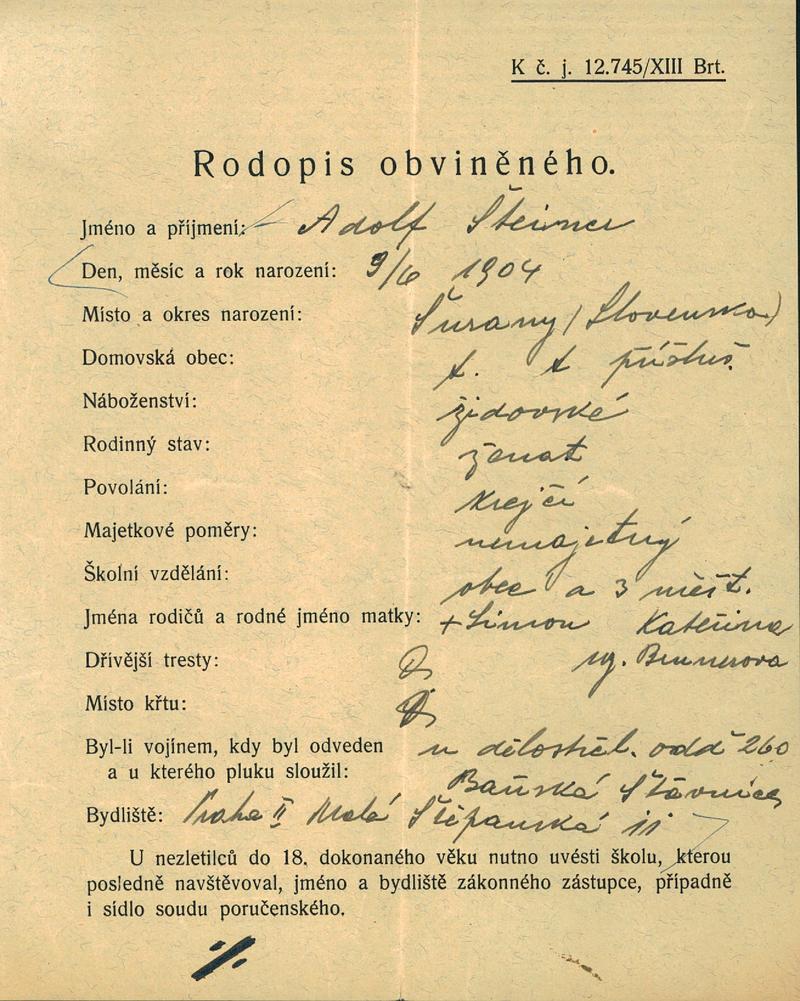 K č. j. 12.745/XIII Brt.
Rodopis obviněného.
Jméno a příjmení: Adolf Steiner
Den, měsíc a rok narození: 9/6 1904
Místo a okres narození: Šurany (Slovensko)
Domovská obec: t. t. přísluš.
Náboženství: židovské
Rodinný stav: ženat
Povolání: krejčí
Majetkové poměry: nemajetný
Školní vzdělání: obec a 3 měšť.
Jména rodičů a rodné jméno matky: + Simon Kateřina
Dřívější tresty: roz. Brunnerova
Místo křtu:
Byl-li vojínem, kdy byl odveden u dělostřel. odd 260
a u kterého pluku sloužil: Baňská Štávnica
Bydliště: Praha II Malá Štěpanská 11
U nezletilců do 18. dokonaného věku nutno uvésti školu, kterou
posledně navštěvoval, jméno a bydliště zákonného zástupce, případně
i sídlo soudu poručenského.